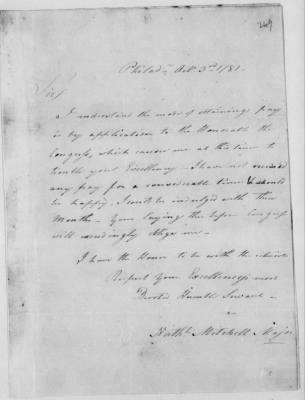 249
Philad.ª Oct. 3rd 1781 -
Sir/
I understand the mode of obtaining pay
is by application to the Honorable the
Congress, which causes me at this time to
trouble your Excellency - I have not received
any pay for a considerable time & should
be happy, I could be indulged with three
Months - Your laying this before Congress
will exceedingly oblige me -
I have the Honor to be with the utmost
Respect your Excellencys most
Devoted Humble Servant -
Nathl. Mitchell Major